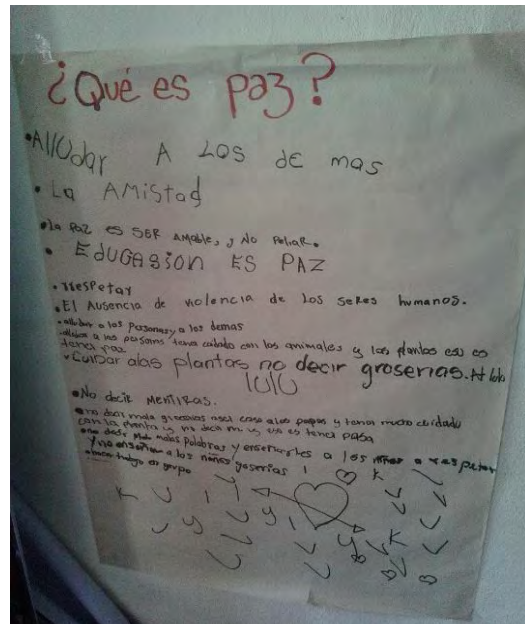 ¿Qué es paz?
•AllUdar A LOS de mas
• La AMistad
•la paz es SER AMable, y No Peliar.
• EdUGAsion ES PAZ
• respetar
•El Ausencia de violencia de los seres humanos.
•alludar a las Personas y a los demas
a las persons tener cuidado con los animales y las plantas eso es
tener paz
•Cuidar alas plantas no decir groserias.
lulu
•No decir mentiras.
•no decir mala groserias aser caso alos papas y tener mucho cuidado
con la planta y no decir y eso es tener
•no decir malas palabras y enseñarles a los a respetar
y no enseñar a los niños groserias
trabajo en grupo
K
y y K